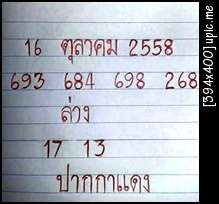 16 ตุลาคม 2558
693 684 698 268
ล่าง
17 13
ปากกาแดง
[394x400]upic.me